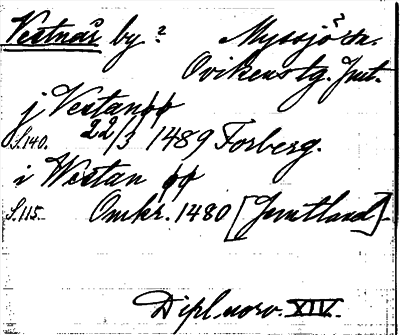 Vestnår by? Myssjö sn.
Ovikens tg. Jmt.
j Vestanøø
S. 140. 22/3 1489 Forberg.
i Westan øø
S. 115. Omkr. 1480 [Jemtland].
Dipl. norv. XIV.